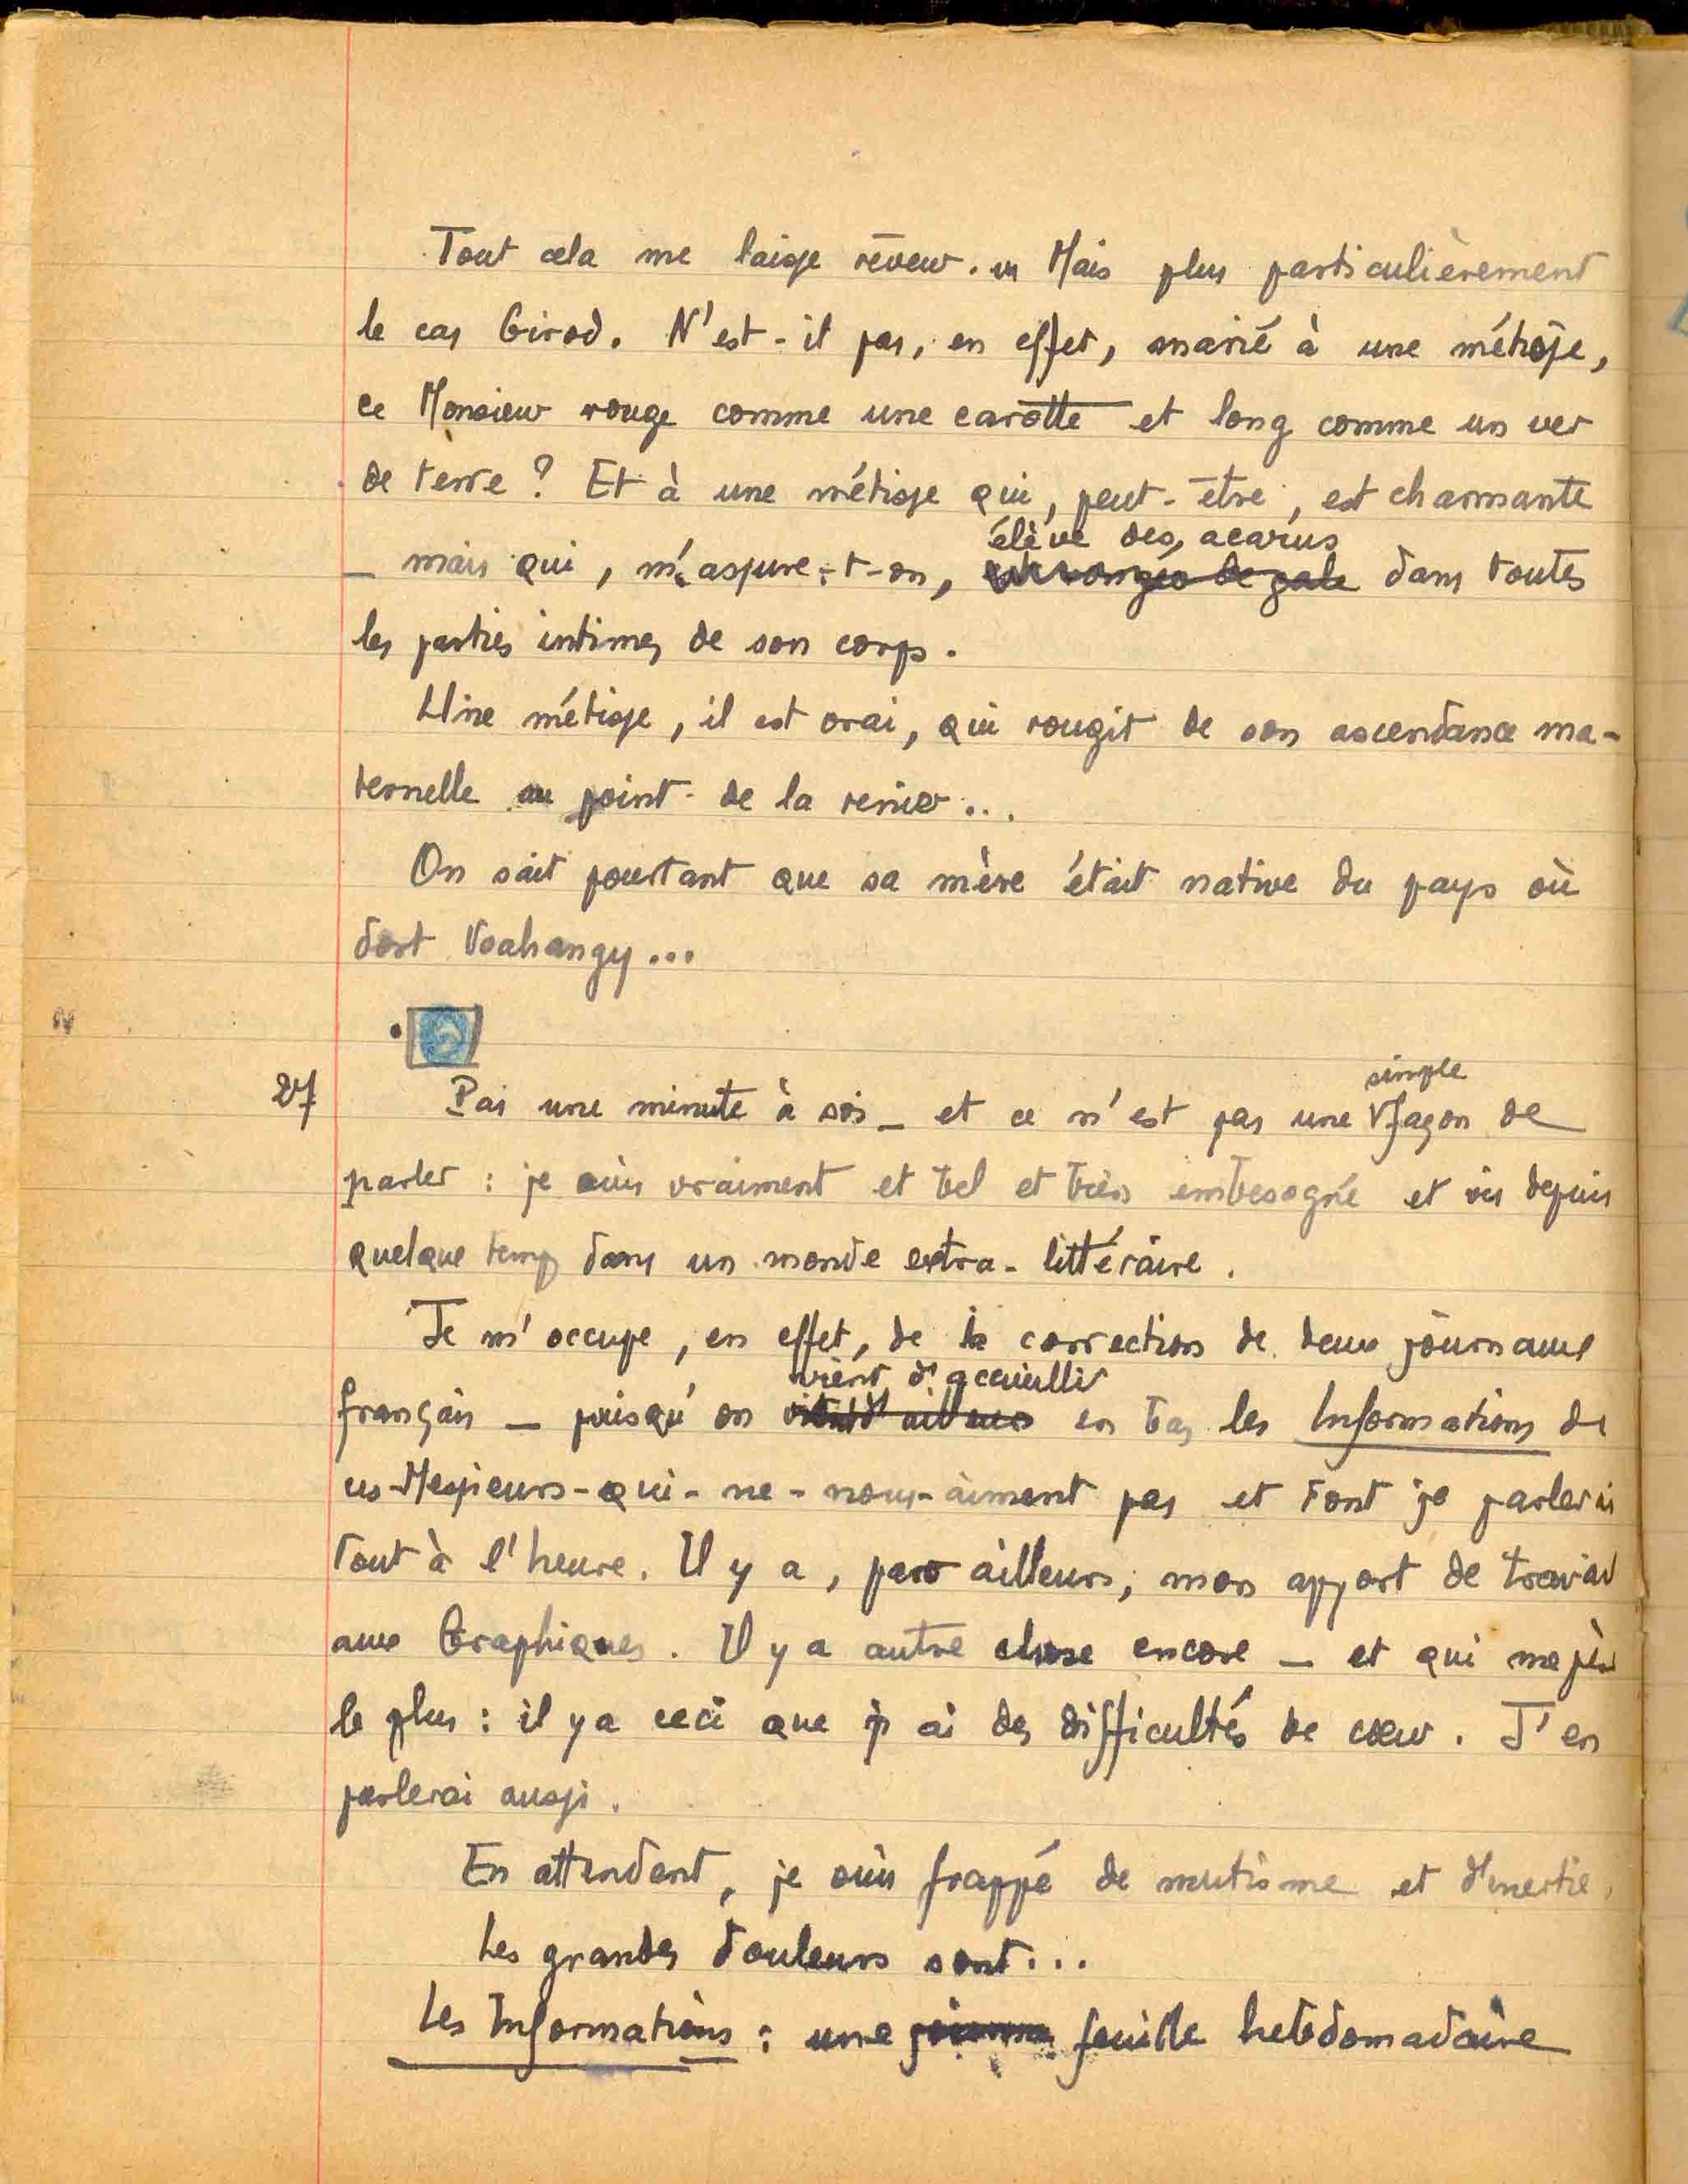 Tout cela me laisse rêveur. Mais plus particulièrement
le cas Girod. N'est-il pas, en effet, marié à une métisse,
ce Monsieur rouge comme une carotte et long comme un ver
de terre ? Et à une métisse qui, peut-être, est charmante
élève des acarus
_ mais qui, m'assure-t-on, dans toutes
les parties intimes de son corps.
Une métisse, il est vrai, qui rougit de son ascendance ma-
ternelle au point de la renier...
On sait pourtant que sa mère était native du pays où
dort Voahangy...
27
simple
Pas une minute à soi _ et ce n'est pas une façon de
parler : je suis vraiment et bel et bien embesogné et vis depuis
quelque temps dans un monde extra-littéraire.
Je m'occupe, en effet, de la correction de deux journaux
vient d'accueillir
français _ puisqu'on en bas les Informations de
ces-Messieurs-qui-ne-nous-aiment pas et dont je parlerai
tout à l'heure. Il y a, par ailleurs, mon apport de travail
aux Graphiques. Il y a autre chose encore _ et qui me pèse
le plus : il y a ceci que j'ai des difficultés de cœur. J'en
parlerai aussi.
En attendant, je suis frappé de mutisme et d'inertie.
Les grandes douleurs sont...
Les Informations : une feuille hebdomadaire